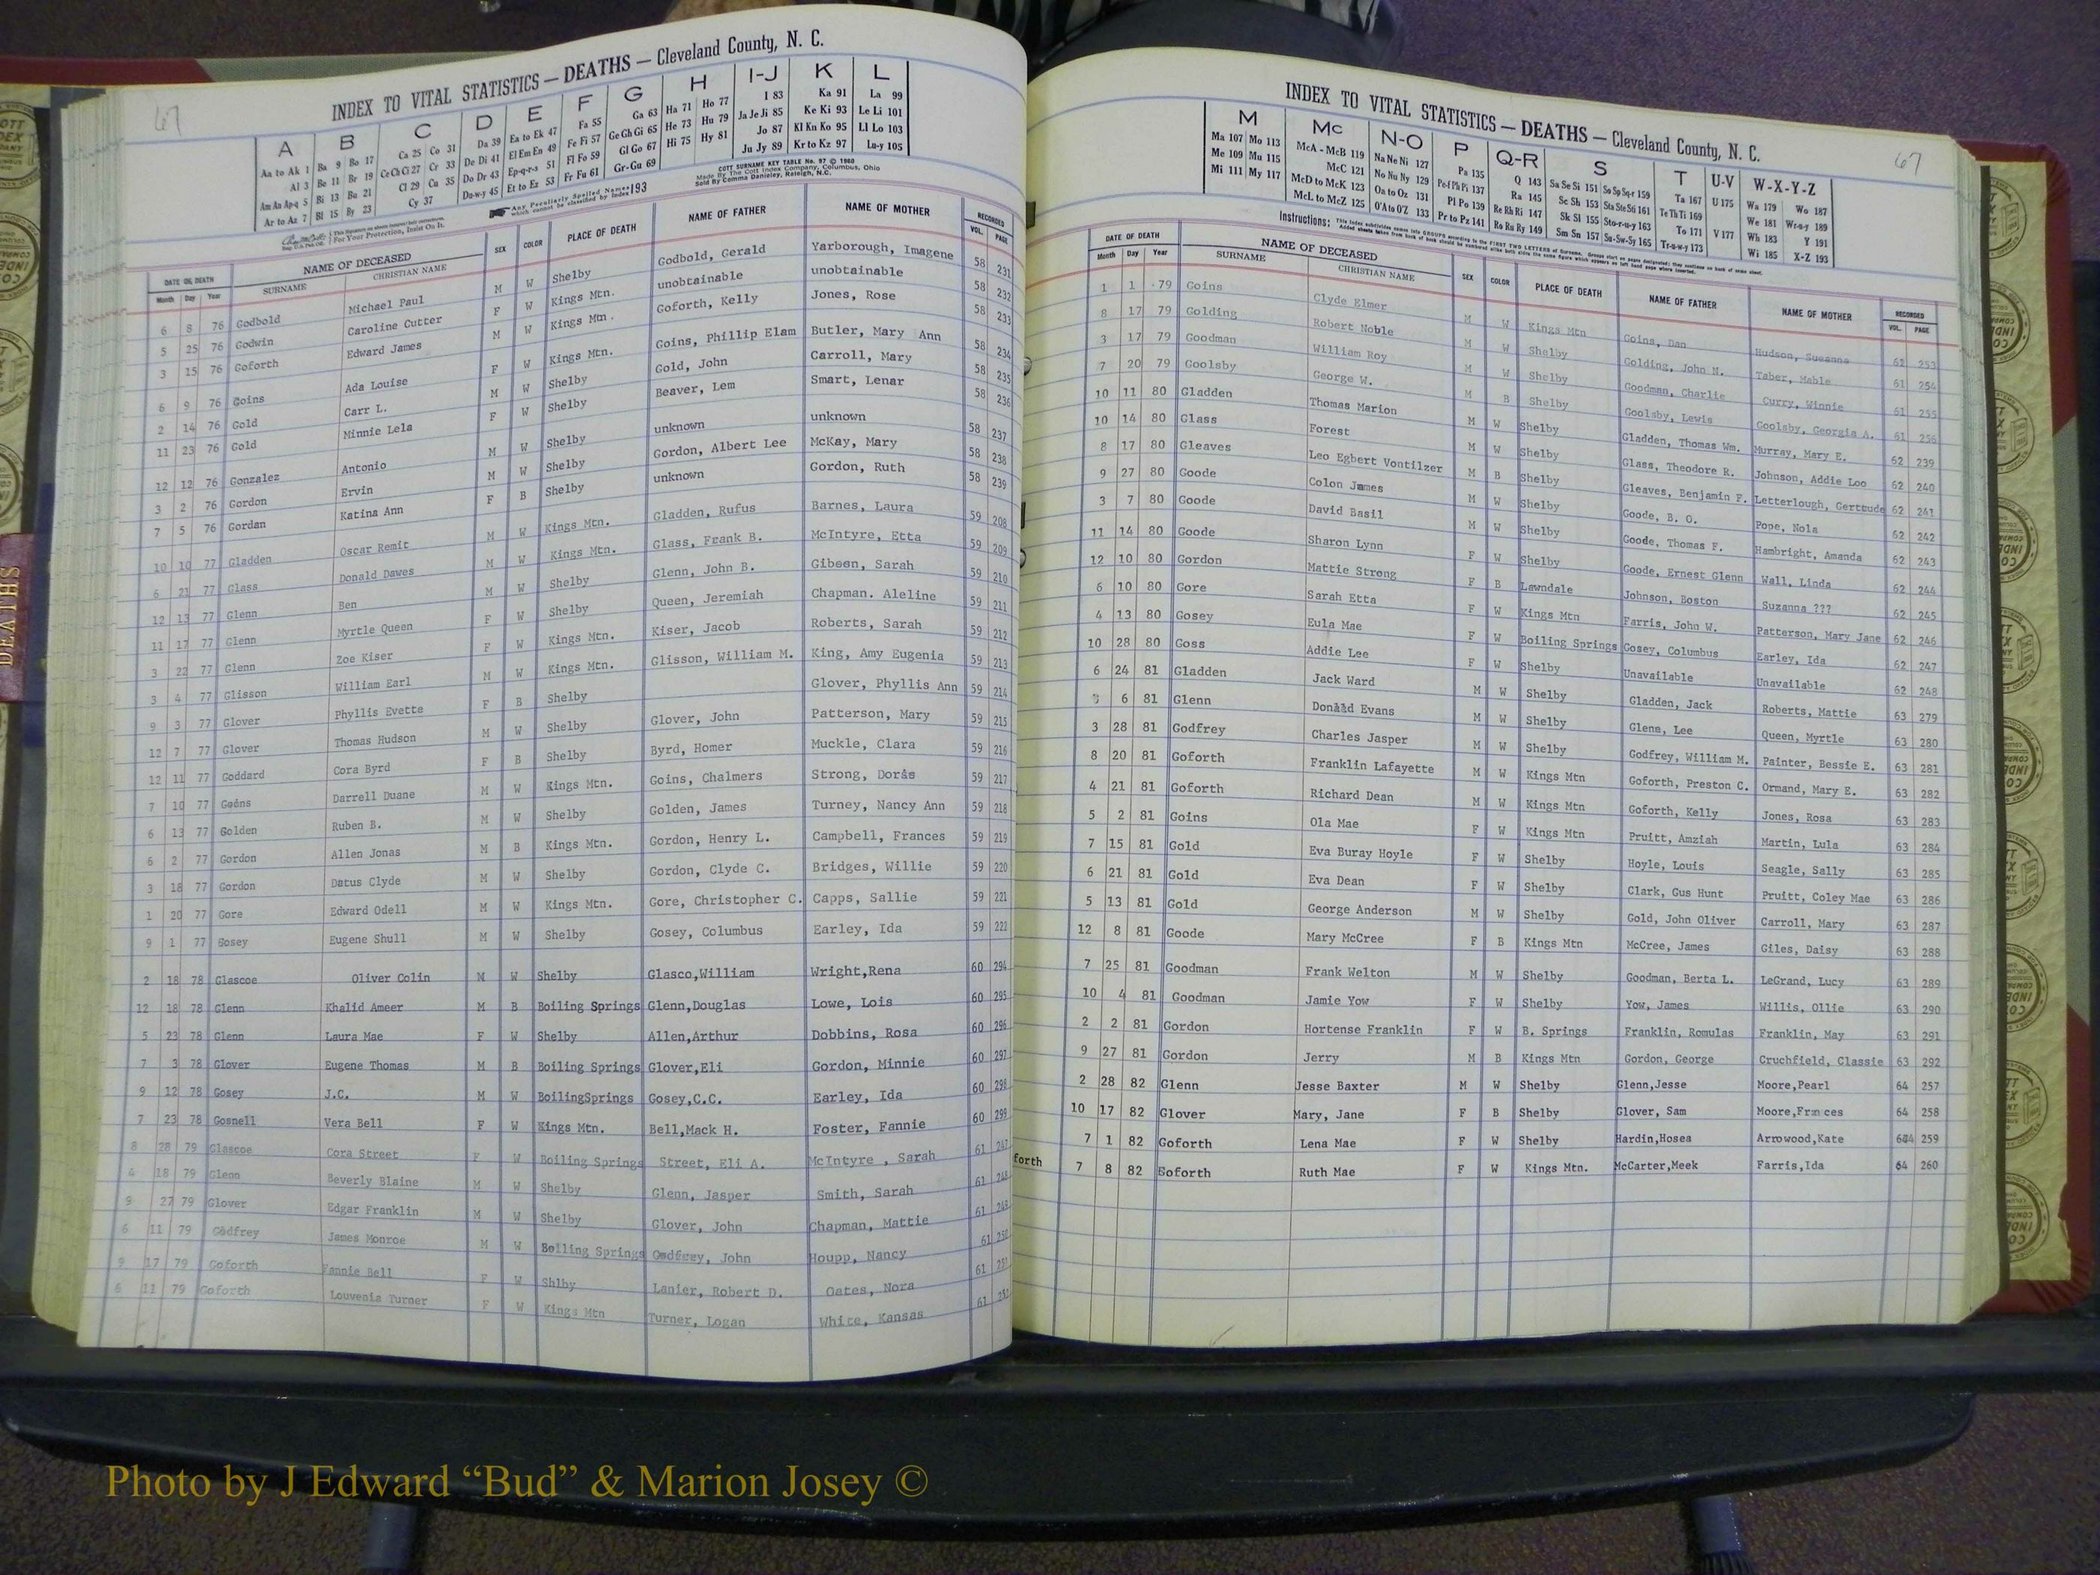 67
INDEX TO VITAL STATISTICS — DEATHS — Cleveland County, N. C.
A B C D E F G H I-J K L
Aa to Ak 1 Ba 9 Bo 17 Ca 25 Co 31 Da 39 Ea to Ek 47 Fa 55 Ga 63 Ha 71 Ho 77 I 83 Ka 91 La 99
Al 3 Be 11 Br 19 Ce Ch Ci 27 Cr 33 De Di 41 El Em En 49 Fe Fi 57 Ge Gh Gi 65 He 73 Hu 79 Ja Je Ji 85 Ke Ki 93 Le Li 101
Am An Ap-q 5 Bi 13 Bu 21 Cl 29 Cu 35 Do Dr 43 Ep-q-r-s 51 Fl Fo 59 Gl Go 67 Hi 75 Hy 81 Jo 87 Kl Kn Ko 95 Ll Lo 103
Ar to Az 7 Bl 15 By 23 Cy 37 Du-w-y 45 Et to Ez 53 Fr Fu 61 Gr-Gu 69 Ju Jy 89 Kr to Kz 97 Lu-y 105
COTT SURNAME KEY TABLE No. 97 © 1960
Made By The Cott Index Company, Columbus, Ohio
Sold By Comma Danieley, Raleigh, N.C.
Any Peculiarly Spelled Names which cannot be classified by Index 193
For Your Protection, Insist On It.
DATE OF DEATH NAME OF DECEASED SEX COLOR PLACE OF DEATH NAME OF FATHER NAME OF MOTHER RECORDED
Month Day Year SURNAME CHRISTIAN NAME VOL. PAGE
6 8 76 Godbold Michael Paul M W Shelby Godbold, Gerald Yarborough, Imagene 58 231
5 25 76 Godwin Caroline Cutter F W Kings Mtn. unobtainable unobtainable 58 232
3 15 76 Goforth Edward James M W Kings Mtn. Goforth, Kelly Jones, Rose 58 233
6 9 76 Goins Ada Louise F W Kings Mtn. Goins, Phillip Elam Butler, Mary Ann 58 234
2 14 76 Gold Carr L. M W Shelby Gold, John Carroll, Mary 58 235
11 23 76 Gold Minnie Lela F W Shelby Beaver, Lem Smart, Lenar 58 236
12 12 76 Gonzalez Antonio M W Shelby unknown unknown 58 237
3 2 76 Gordon Ervin M W Shelby Gordon, Albert Lee McKay, Mary 58 238
7 5 76 Gordan Katina Ann F B Shelby unknown Gordon, Ruth 58 239
10 10 77 Gladden Oscar Remit M W Kings Mtn. Gladden, Rufus Barnes, Laura 59 208
6 21 77 Glass Donald Dawes M W Kings Mtn. Glass, Frank B. McIntyre, Etta 59 209
12 13 77 Glenn Ben M W Shelby Glenn, John B. Gibson, Sarah 59 210
11 17 77 Glenn Myrtle Queen F W Shelby Queen, Jeremiah Chapman. Aleline 59 211
3 22 77 Glenn Zoe Kiser F W Kings Mtn. Kiser, Jacob Roberts, Sarah 59 212
3 4 77 Glisson William Earl M W Kings Mtn. Glisson, William M. King, Amy Eugenia 59 213
9 3 77 Glover Phyllis Evette F B Shelby Glover, Phyllis Ann 59 214
12 7 77 Glover Thomas Hudson M W Shelby Glover, John Patterson, Mary 59 215
12 11 77 Goddard Cora Byrd F B Shelby Byrd, Homer Muckle, Clara 59 216
7 10 77 Goins Darrell Duane M W Kings Mtn. Goins, Chalmers Strong, Doris 59 217
6 13 77 Golden Ruben B. M W Shelby Golden, James Turney, Nancy Ann 59 218
6 2 77 Gordon Allen Jonas M B Kings Mtn. Gordon, Henry L. Campbell, Frances 59 219
3 18 77 Gordon Datus Clyde M W Shelby Gordon, Clyde C. Bridges, Willie 59 220
1 20 77 Gore Edward Odell M W Kings Mtn. Gore, Christopher C. Capps, Sallie 59 221
9 1 77 Gosey Eugene Shull M W Shelby Gosey, Columbus Earley, Ida 59 222
2 18 78 Glascoe Oliver Colin M W Shelby Glasco,William Wright,Rena 60 294
12 18 78 Glenn Khalid Ameer M B Boiling Springs Glenn,Douglas Lowe, Lois 60 295
5 23 78 Glenn Laura Mae F W Shelby Allen,Arthur Dobbins, Rosa 60 296
7 3 78 Glover Eugene Thomas M B Boiling Springs Glover,Eli Gordon, Minnie 60 297
9 12 78 Gosey J.C. M W BoilingSprings Gosey,C.C. Earley, Ida 60 298
7 23 78 Gosnell Vera Bell F W Kings Mtn. Bell,Mack H. Foster, Fannie 60 299
8 28 79 Glascoe Cora Street F W Boiling Springs Street, Eli A. McIntyre , Sarah 61 247
4 18 79 Glenn Beverly Blaine M W Shelby Glenn, Jasper Smith, Sarah 61 248
9 27 79 Glover Edgar Franklin M W Shelby Glover, John Chapman, Mattie 61 249
6 11 79 Godfrey James Monroe M W Boiling Springs Godfrey, John Houpp, Nancy 61 250
9 17 79 Goforth Fannie Bell F W Shlby Lanier, Robert D. Oates, Nora 61 251
6 11 79 Goforth Louvenia Turner F W Kings Mtn Turner, Logan White, Kansas 61 252
67
INDEX TO VITAL STATISTICS — DEATHS — Cleveland County, N. C.
M Mc N-O P Q-R S T U-V W-X-Y-Z
Ma 107 Mo 113 McA - McB 119 Na Ne Ni 127 Pa 135 Q 143 Sa Se Si 151 So Sp Sq-r 159 Ta 167 U 175 Wa 179 Wo 187
Me 109 Mu 115 McC 121 No Nu Ny 129 Pe-f Ph Pi 137 Ra 145 Sc Sh 153 Sta Ste Sti 161 Te Th Ti 169 We 181 Wr-u-y 189
Mi 111 My 117 McD to McK 123 Oa to Oz 131 Pl Po 139 Re Rh Ri 147 Sk Sl 155 Sto-r-u-y 163 To 171 V 177 Wh 183 Y 191
McL to McZ 125 O'A to O'Z 133 Pr to Pz 141 Ro Ru Ry 149 Sm Sn 157 Su-Sw-Sy 165 Tr-u-w-y 173 Wi 185 X-Z 193
Instructions: This Index subdivides names into GROUPS according to the FIRST TWO LETTERS of Surname.
DATE OF DEATH NAME OF DECEASED SEX COLOR PLACE OF DEATH NAME OF FATHER NAME OF MOTHER RECORDED
Month Day Year SURNAME CHRISTIAN NAME VOL. PAGE
1 1 79 Goins Clyde Elmer M W Kings Mtn Goins, Dan Hudson, Sueanna 62 253
8 17 79 Golding Robert Noble M W Shelby Golding, John N. Taber, Mable 61 254
3 17 79 Goodman William Roy M W Shelby Goodman, Charlie Curry, Winnie 61 255
7 20 79 Goolsby George W. M B Shelby Goolsby, Lewis Goolsby, Georgia A. 61 256
10 11 80 Gladden Thomas Marion M W Shelby Gladden, Thomas Wm. Murray, Mary E. 62 239
10 14 80 Glass Forest M W Shelby Glass, Theodore R. Johnson, Addie Loo 62 240
8 17 80 Gleaves Leo Egbert Vontilzer M B Shelby Gleaves, Benjamin F. Letterlough, Gertrude 62 241
9 27 80 Goode Colon James M W Shelby Goode, B. O. Pope, Nola 62 242
3 7 80 Goode David Basil M W Shelby Goode, Thomas F. Hambright, Amanda 62 243
11 14 80 Goode Sharon Lynn F W Shelby Goode, Ernest Glenn Wall, Linda 62 244
12 10 80 Gordon Mattie Strong F B Lawndale Johnson, Boston Suzanna ??? 62 245
6 10 80 Gore Sarah Etta F W Kings Mtn Farris, John W. Patterson, Mary Jane 62 246
4 13 80 Gosey Eula Mae F W Boiling Springs Gosey, Columbus Earley, Ida 62 247
10 28 80 Goss Addie Lee F W Shelby Unavailable Unavailable 62 248
6 24 81 Gladden Jack Ward M W Shelby Gladden, Jack Roberts, Mattie 63 279
6 81 Glenn Donald Evans M W Shelby Glene, Lee Queen, Myrtle 63 280
3 28 81 Godfrey Charles Jasper M W Shelby Godfrey, William M. Painter, Bessie E. 63 281
8 20 81 Goforth Franklin Lafayette M W Kings Mtn Goforth, Preston C. Ormand, Mary E. 63 282
4 21 81 Goforth Richard Dean M W Kings Mtn Goforth, Kelly Jones, Rosa 63 283
5 2 81 Goins Ola Mae F W Kings Mtn Pruitt, Amziah Martin, Lula 63 284
7 15 81 Gold Eva Buray Hoyle F W Shelby Hoyle, Louis Seagle, Sally 63 285
6 21 81 Gold Eva Dean F W Shelby Clark, Gus Hunt Pruitt, Coley Mae 63 286
5 13 81 Gold George Anderson M W Shelby Gold, John Oliver Carroll, Mary 63 287
12 8 81 Goode Mary McCree F B Kings Mtn McCree, James Giles, Daisy 63 288
7 25 81 Goodman Frank Welton M W Shelby Goodman, Berta L. LeGrand, Lucy 63 289
10 4 81 Goodman Jamie Yow F W Shelby Yow, James Willis, Ollie 63 290
2 2 81 Gordon Hortense Franklin F W B. Springs Franklin, Romulas Franklin, May 63 291
9 27 81 Gordon Jerry M B Kings Mtn Gordon, George Cruchfield, Classie 63 292
2 28 82 Glenn Jesse Baxter M W Shelby Glenn,Jesse Moore,Pearl 64 257
10 17 82 Glover Mary, Jane F B Shelby Glover, Sam Moore,Frances 64 258
7 1 82 Goforth Lena Mae F W Shelby Hardin,Hosea Arrowood,Kate 64 259
forth 7 8 82 Goforth Ruth Mae F W Kings Mtn. McCarter,Meek Farris,Ida 64 260
DEATHS
Photo by J Edward “Bud” & Marion Josey ©